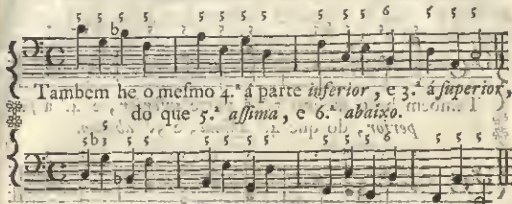 5 5 5 5 5 5 5 5 5 5 5 6 5 5 5
Tambem he o meſmo 4.ª á parte inferior, e 3.ª á ſuperior,
do que 5.ª aſſima, e 6.ª abaixo.
5 5
5 b3 5 5 5 5 5 5 5 5 5 6 5 5 5